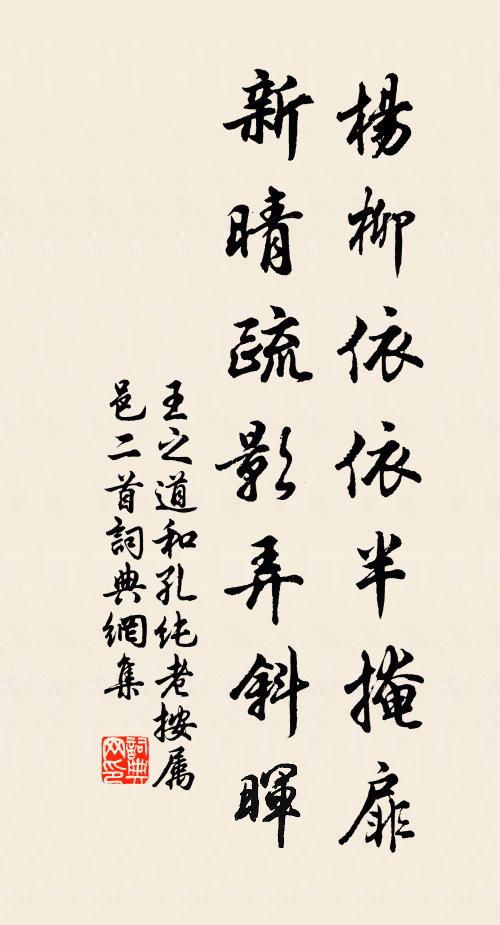 楊柳依依半掩扉
新晴疏影弄斜暉
王之道和孔純老按屬
邑二首詞典網集
詞典
網印